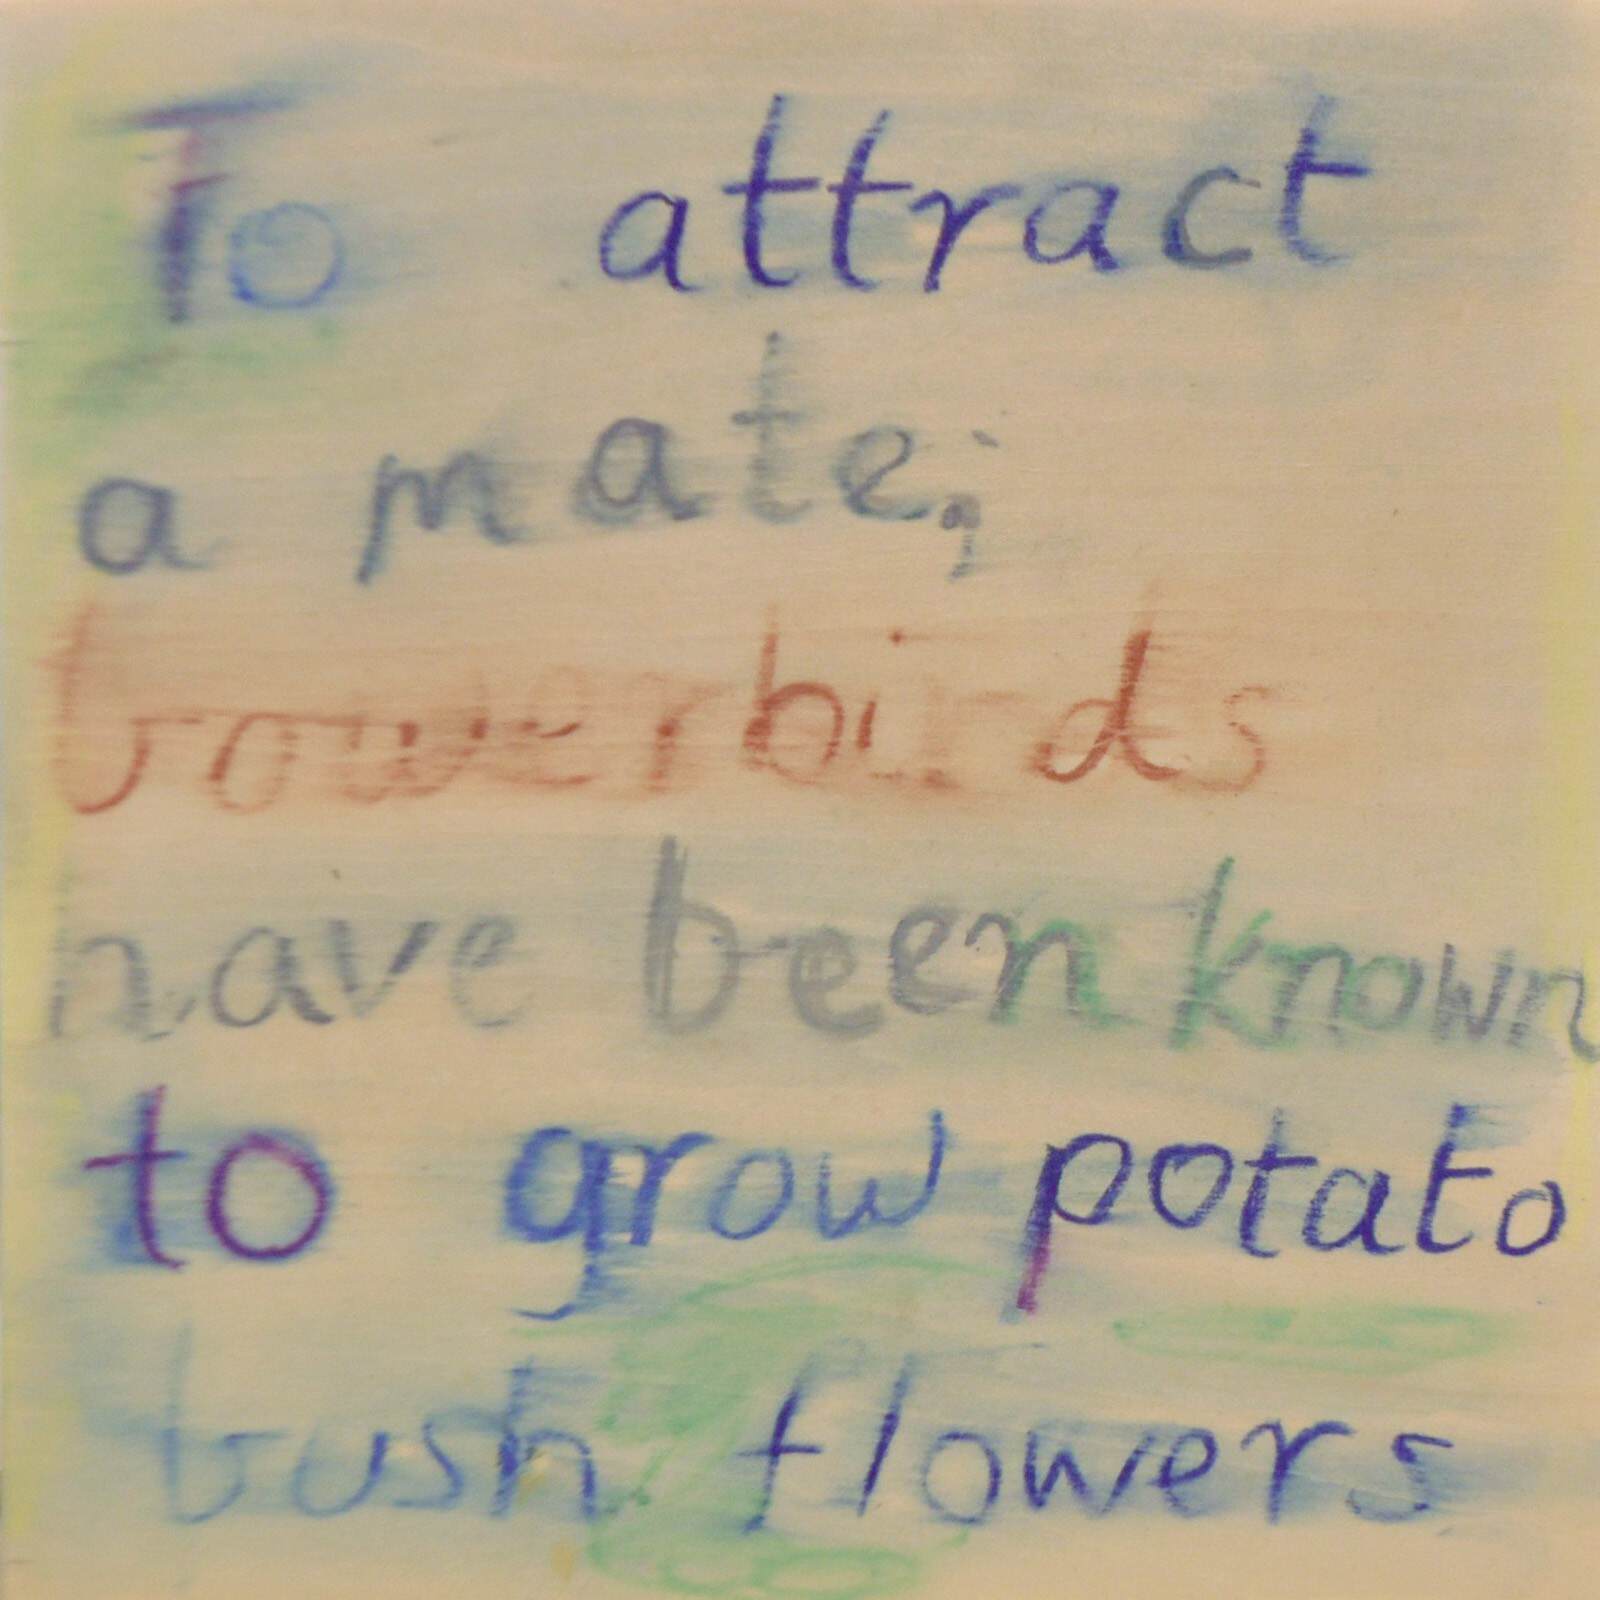 To attract
a mate;
bowerbirds
have been known
to grow potato
bush flowers